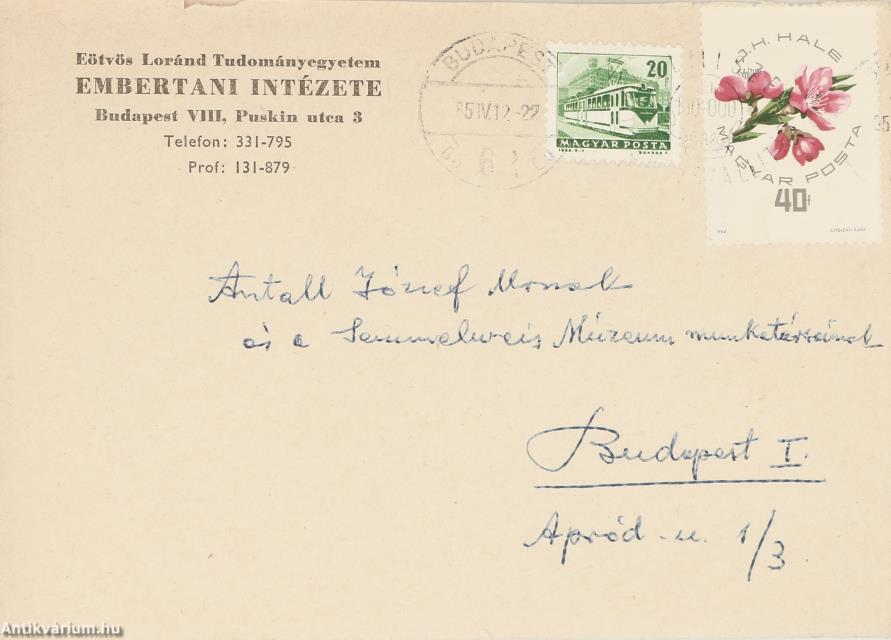 Eötvös Loránd Tudományegyetem
EMBERTANI INTÉZETE
Budapest VIII, Puskin utca 3
Telefon: 331-795
Prof: 131-879
BUDAPEST
65 IV.12.-22
20
MAGYAR POSTA
J.H. HALE
MAGYAR POSTA
40f
Antall József
és a Semmelweis Múzeum munkatársainak
Budapest I.
Apród-u. 1/3
Antikvárium.hu